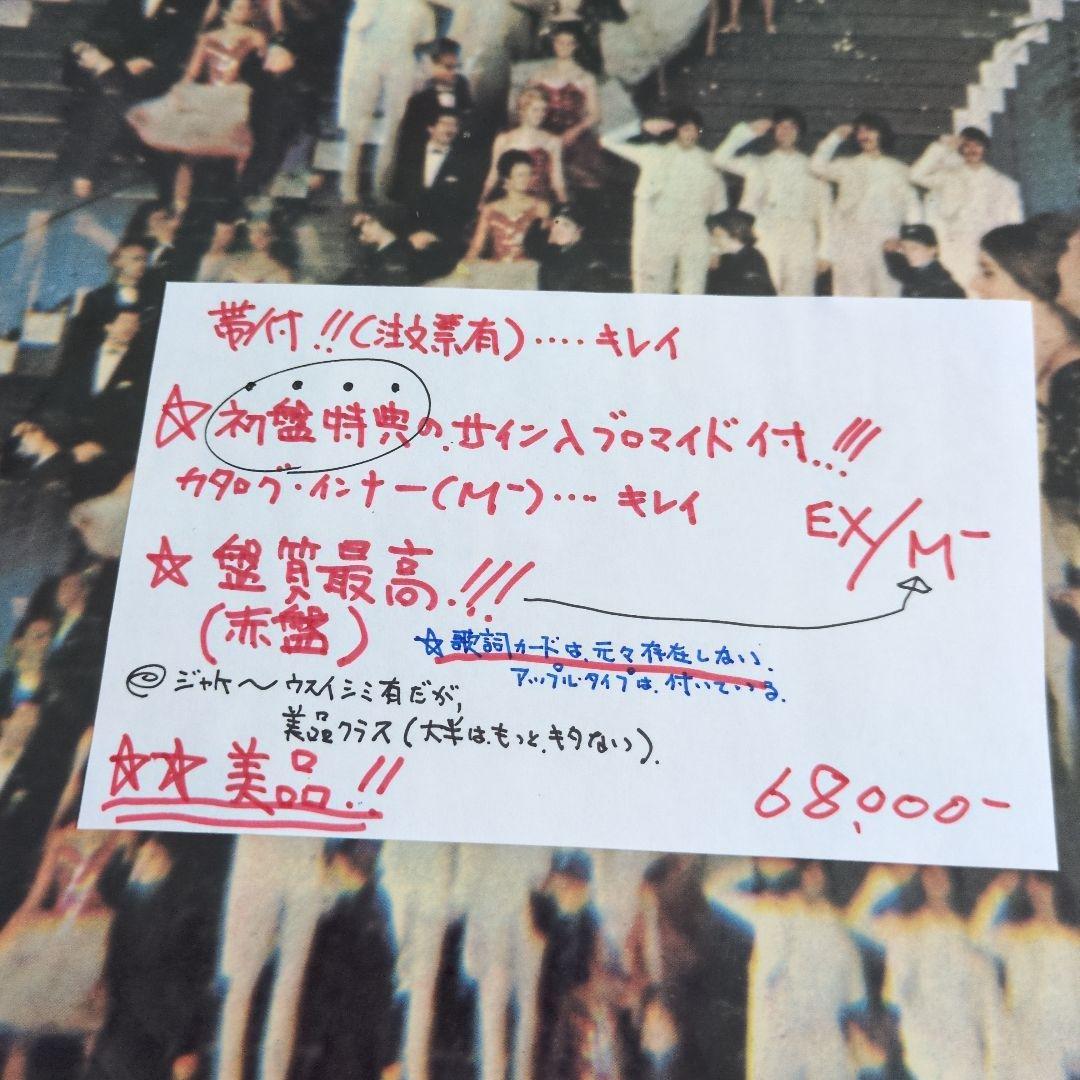 帯付!!(注文票有)‥‥キレイ
☆初盤特典の、サイン入ブロマイド付..!!!
カタログ・インナー(M⁻)‥‥キレイ
EX/M⁻
☆盤質最高.!!!
(赤盤)
☆歌詞カードは、元々存在しない.
アップル・タイプは、付いている.
ジャケ〜ウスイシミ有だが,
美品クラス(大半は、もっと、キタない).
☆☆美品.!!
68,000-